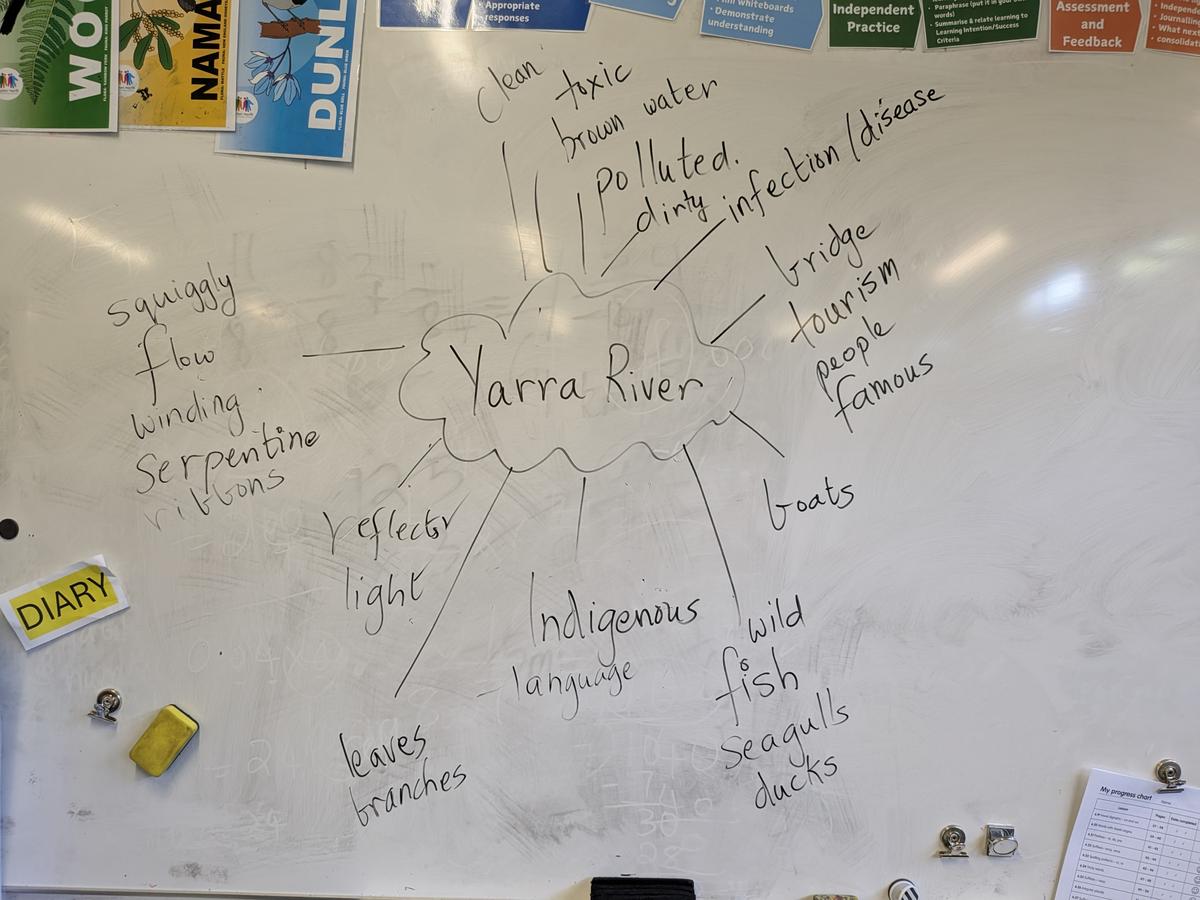 WO
NAMA
DUNL
• Appropriate
responses
mini whiteboards
• Demonstrate
understanding
Independent
Practice
• Paraphrase (put it in your own
words)
• Summarise & relate learning to
Learning Intention/Success
Criteria
Assessment
and
Feedback
• Journalling
• What next
clean
toxic
brown water
polluted.
dirty
infection/disease
bridge
tourism
people
famous
squiggly
flow
winding
serpentine
ribbons
Yarra River
boats
reflects
light
Indigenous
- language
wild
fish
seagulls
ducks
leaves
branches
DIARY
My progress chart